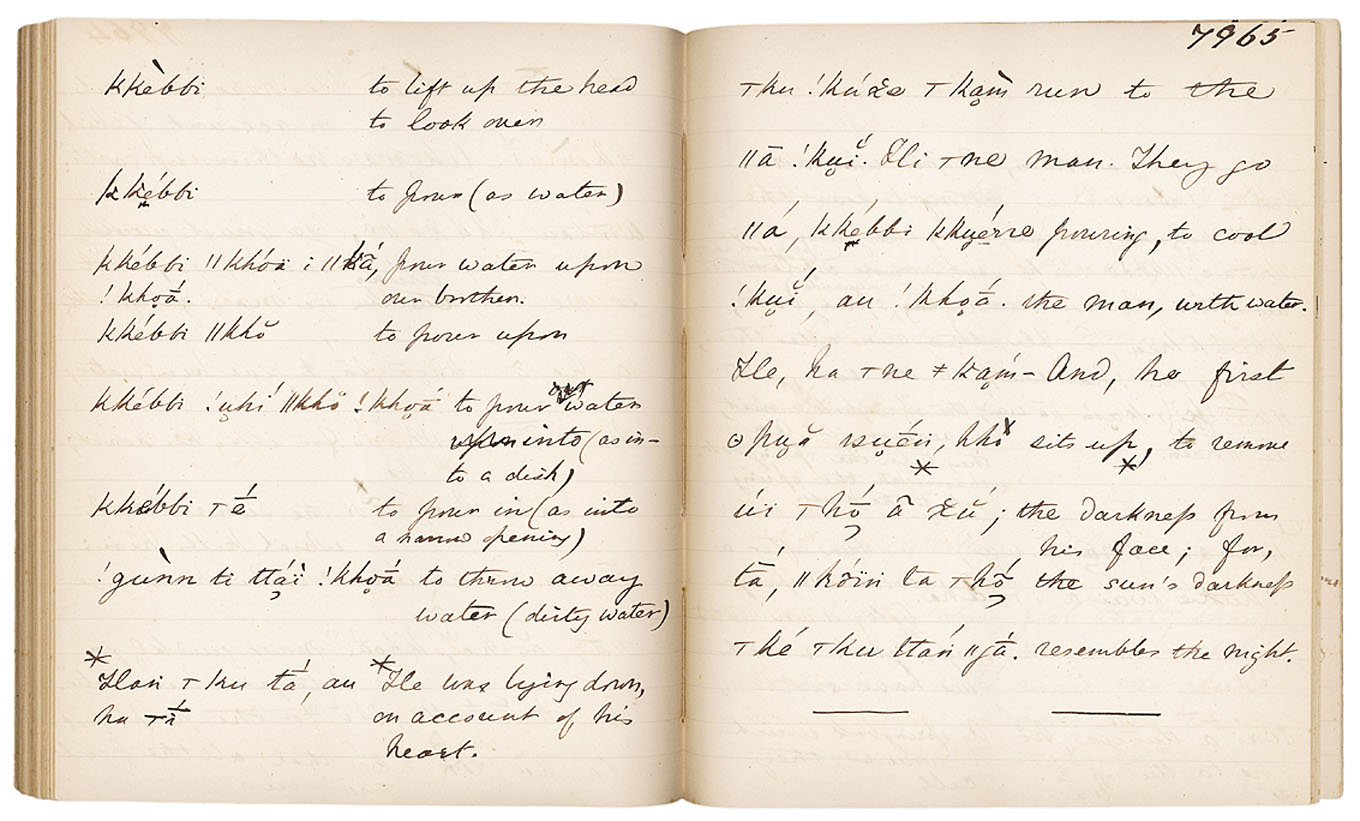 kkèbbi to lift up the head
to look over
kkébbi to pour (as water)
kkébbi ǁkhóä i ǁkā, pour water upon
!khọ́ā. our brother.
kkébbi ǁkhŏ to pour upon
kkébbi !ụhí ǁkhŏ !khọ́ā to pour out water
into (as in-
to a dish)
kkébbi ⊤é to pour in (as into
a narrow opening)
!gùnn ti ttái !khọ́ā to throw away
water (dirty water)
* Han ⊤ku tā́, au * He was lying down,
ha ⊤ī́ on account of his
heart.
7965
⊤ku !kúẍe ⊤kạm̀ run to the
ǁā !kụĭ. Hi ⊤ne man. They go
ǁá, kkébbi kkụérre pouring, to cool
!kụĭ, au !khọ́ā. the man, with water.
He, ha ⊤ne ǂkạḿ- And, he first
ʘpụă ssụéń, hhŏ sits up, to remove
* *
úi ⊤họ́ â ẍŭ; the darkness from
his face; for,
tā́, ǁkó̈in ta ⊤họ́ the sun's darkness
⊤ké ⊤ku ttań ǁgā. resembles the night.